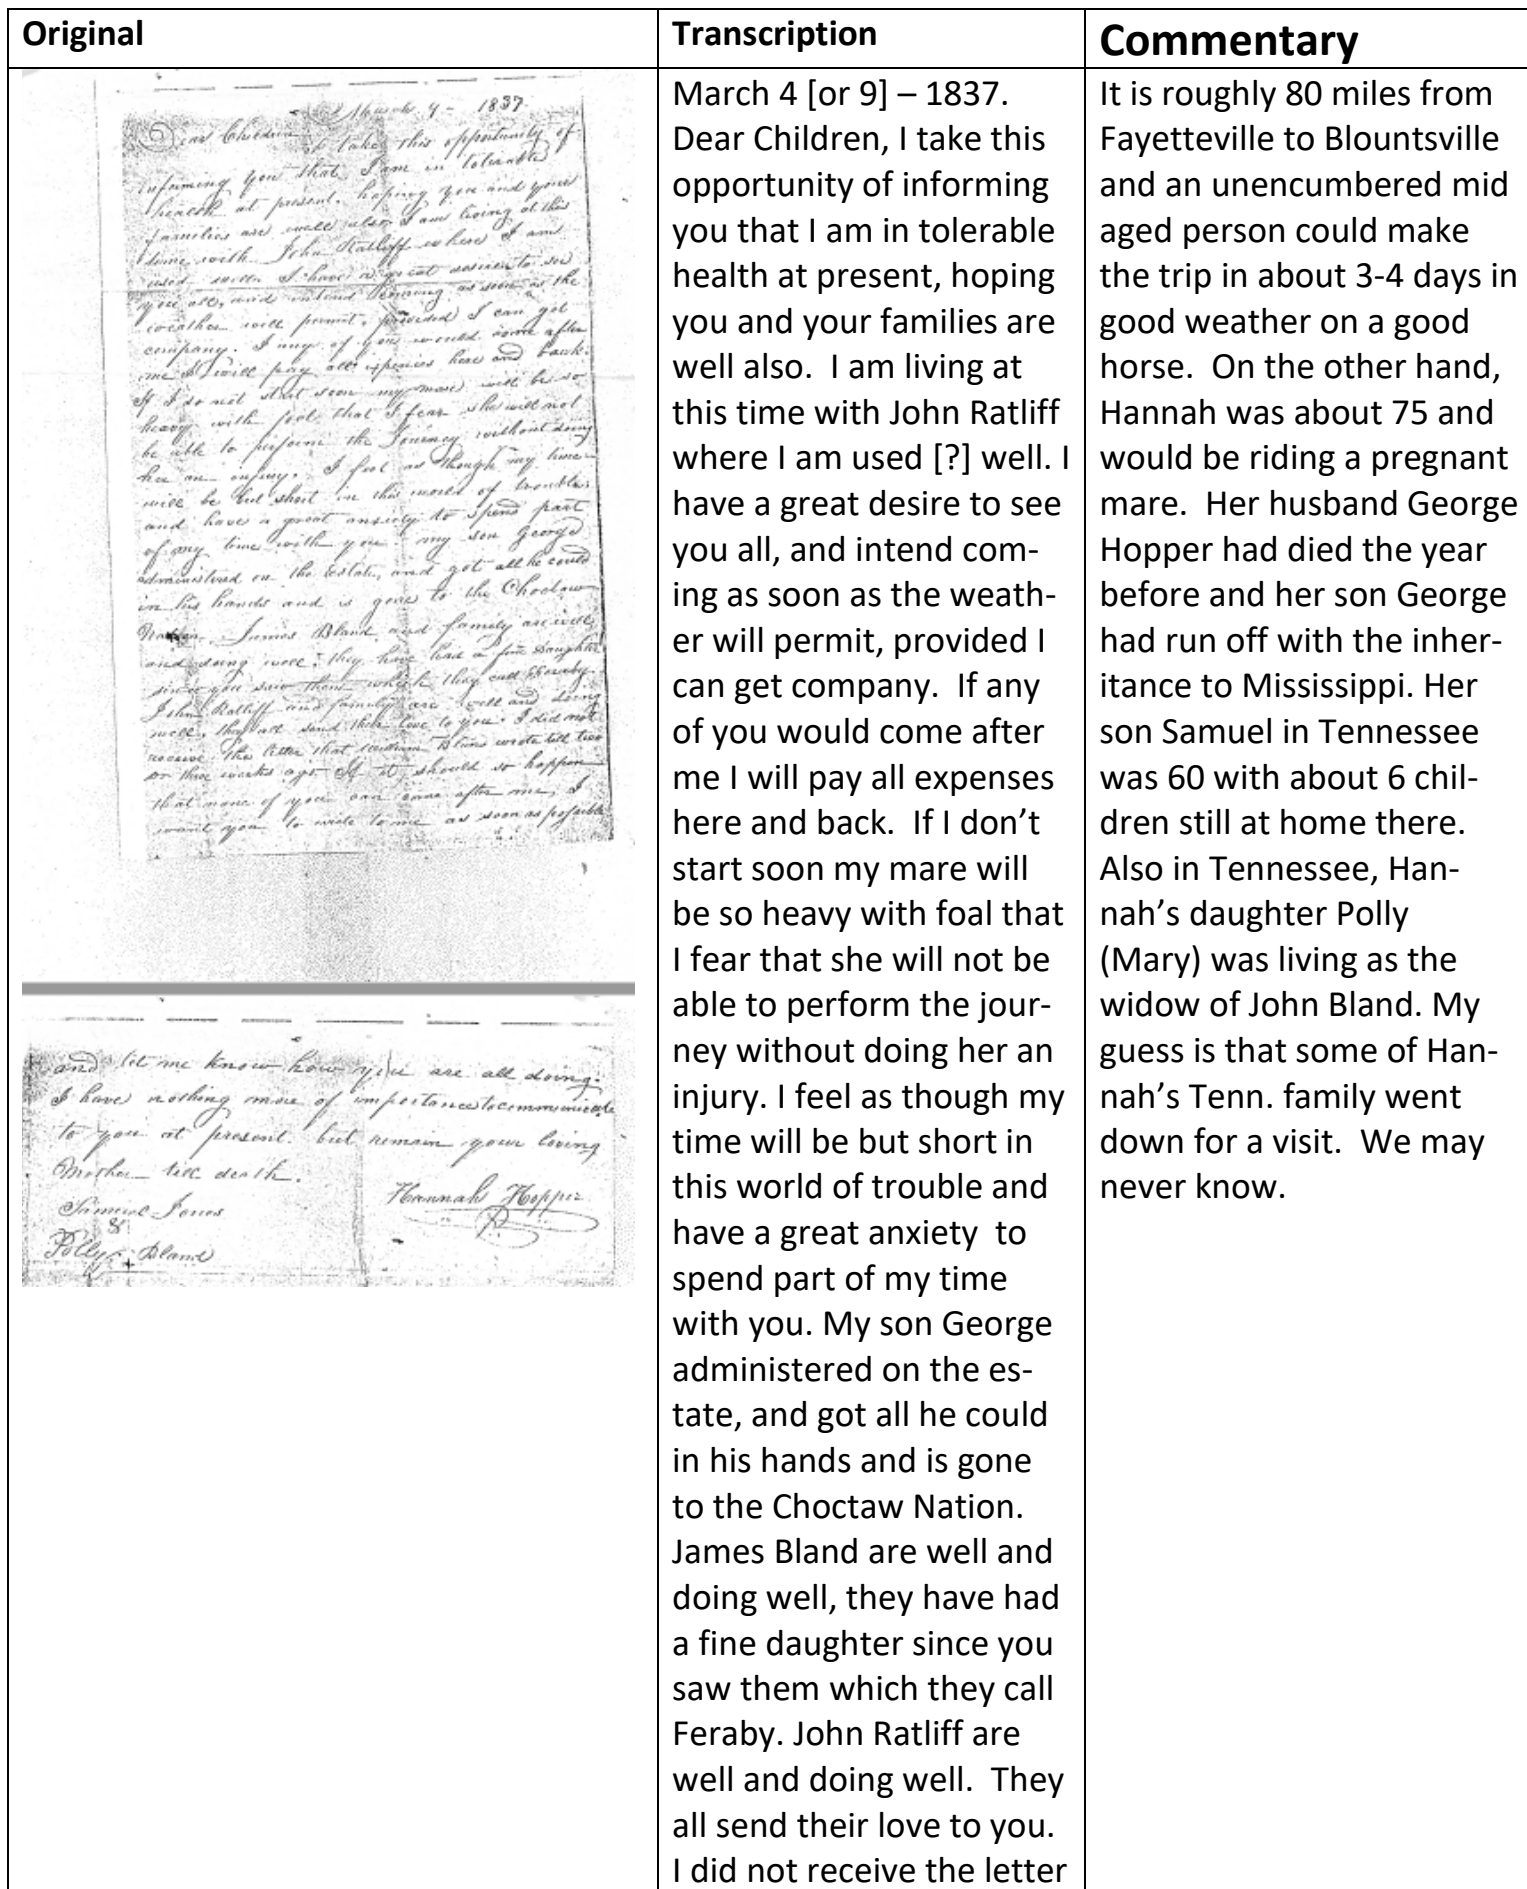 Original
March 4 - 1837.
Dear Children I take this opportunity of
informing you that I am in tolerable
health at present. hoping you and your
families are well also I am living at this
time with John Ratliff where I am
used well I have a great desire to see
you all, and intend coming as soon as the
weather will permit, provided I can get
company. If any of you would come after
me I will pay all expences here and back.
If I do not start soon my mare will be so
heavy with foal that I fear she will not
be able to perform the Journey without doing
her an injury. I feel as though my time
will be but short in this world of trouble
and have a great anxiety to spend part
of my time with you my son George
administered on the estate, and got all he could
in his hands and is gone to the Choctaw
Nation. James Bland and family are well
and doing well, they have had a fine Daughter
since you saw them which they call Feraby.
John Ratliff and family are well and doing
well, they all send their love to you. I did not
receive the letter that William Bland wrote till two
or three weeks ago If it should so happen
that none of you can come after me, I
want you to write to me as soon as possible
and let me know how you are all doing.
I have nothing more of importance to communicate
to you at present. but remain your loving
Mother till death.
Hannah Hopper
Samuel Jones
&
Polly Bland
Transcription
March 4 [or 9] – 1837.
Dear Children, I take this
opportunity of informing
you that I am in tolerable
health at present, hoping
you and your families are
well also.  I am living at
this time with John Ratliff
where I am used [?] well. I
have a great desire to see
you all, and intend com-
ing as soon as the weath-
er will permit, provided I
can get company.  If any
of you would come after
me I will pay all expenses
here and back.  If I don’t
start soon my mare will
be so heavy with foal that
I fear that she will not be
able to perform the jour-
ney without doing her an
injury. I feel as though my
time will be but short in
this world of trouble and
have a great anxiety  to
spend part of my time
with you. My son George
administered on the es-
tate, and got all he could
in his hands and is gone
to the Choctaw Nation.
James Bland are well and
doing well, they have had
a fine daughter since you
saw them which they call
Feraby. John Ratliff are
well and doing well.  They
all send their love to you.
I did not receive the letter
Commentary
It is roughly 80 miles from
Fayetteville to Blountsville
and an unencumbered mid
aged person could make
the trip in about 3-4 days in
good weather on a good
horse.  On the other hand,
Hannah was about 75 and
would be riding a pregnant
mare.  Her husband George
Hopper had died the year
before and her son George
had run off with the inher-
itance to Mississippi. Her
son Samuel in Tennessee
was 60 with about 6 chil-
dren still at home there.
Also in Tennessee, Han-
nah’s daughter Polly
(Mary) was living as the
widow of John Bland. My
guess is that some of Han-
nah’s Tenn. family went
down for a visit.  We may
never know.